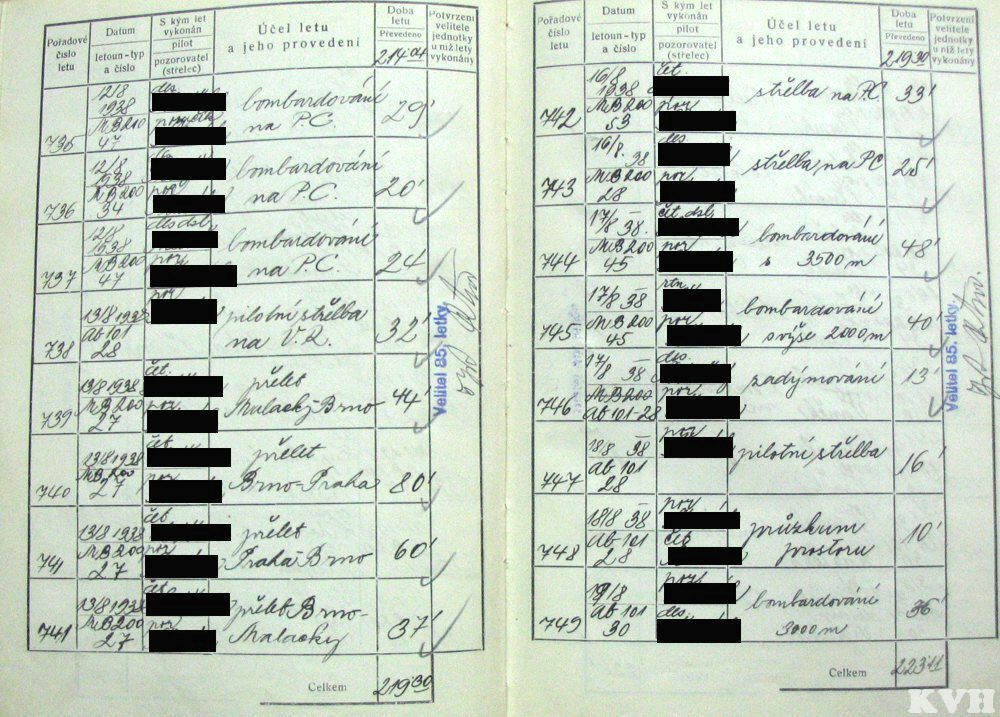 Pořadové číslo letu
Datum
letoun-typ a číslo
S kým let vykonán
pilot
pozorovatel (střelec)
Účel letu a jeho provedení
Doba letu
Převedeno
214·04
Potvrzení velitele jednotky u níž lety vykonány
12/8 1938 des. bombardování
736 MB200 47 na P.C. 29'
12/8 1938 bombardování
736 MB200 34 por na P.C. 20'
12/8 1938 des dsl bombardování
737 MB200 47 por na P.C. 24'
13/8 1938 por pilotní střelba
738 Ab 101 28 na V.R. 32'
13/8 1938 čet. přelet
739 MB200 27 por Malacky-Brno 44'
13/8 1938 čet přelet
740 MB200 27 por Brno-Praha 80'
13/8 1938 čet přelet
741 MB200 27 por Praha-Brno 60'
13/8 1938 čet. přelet Brno-
741 MB200 27 por Malacky 37'
Celkem 219·30
Velitel 85. letky
Pořadové číslo letu
Datum
letoun-typ a číslo
S kým let vykonán
pilot
pozorovatel (střelec)
Účel letu a jeho provedení
Doba letu
Převedeno
219·30
Potvrzení velitele jednotky u níž lety vykonány
16/8 1938 čet. střelba na P.C. 33'
742 MB200 53 por
16/8. 38 des. střelba na PC 25'
743 MB200 28 por
17/8 38. čet. dsl. bombardování
744 MB200 45 por s 3500 m 48'
17/8 38 rtn bombardování
745 MB200 45 por. s výše 2000 m 40'
17/8 38 des. zadýmování 13'
746 MB200 Ab 101-28 por
18/8 38 por pilotní střelba
747 Ab 101 28 16'
18/8 38 por průzkum
748 Ab 101 28 čet prostoru 10'
19/8 por. bombardování
749 Ab 101 30 des. 3000 m 36'
Celkem 223·11
Velitel 85. letky
KVH